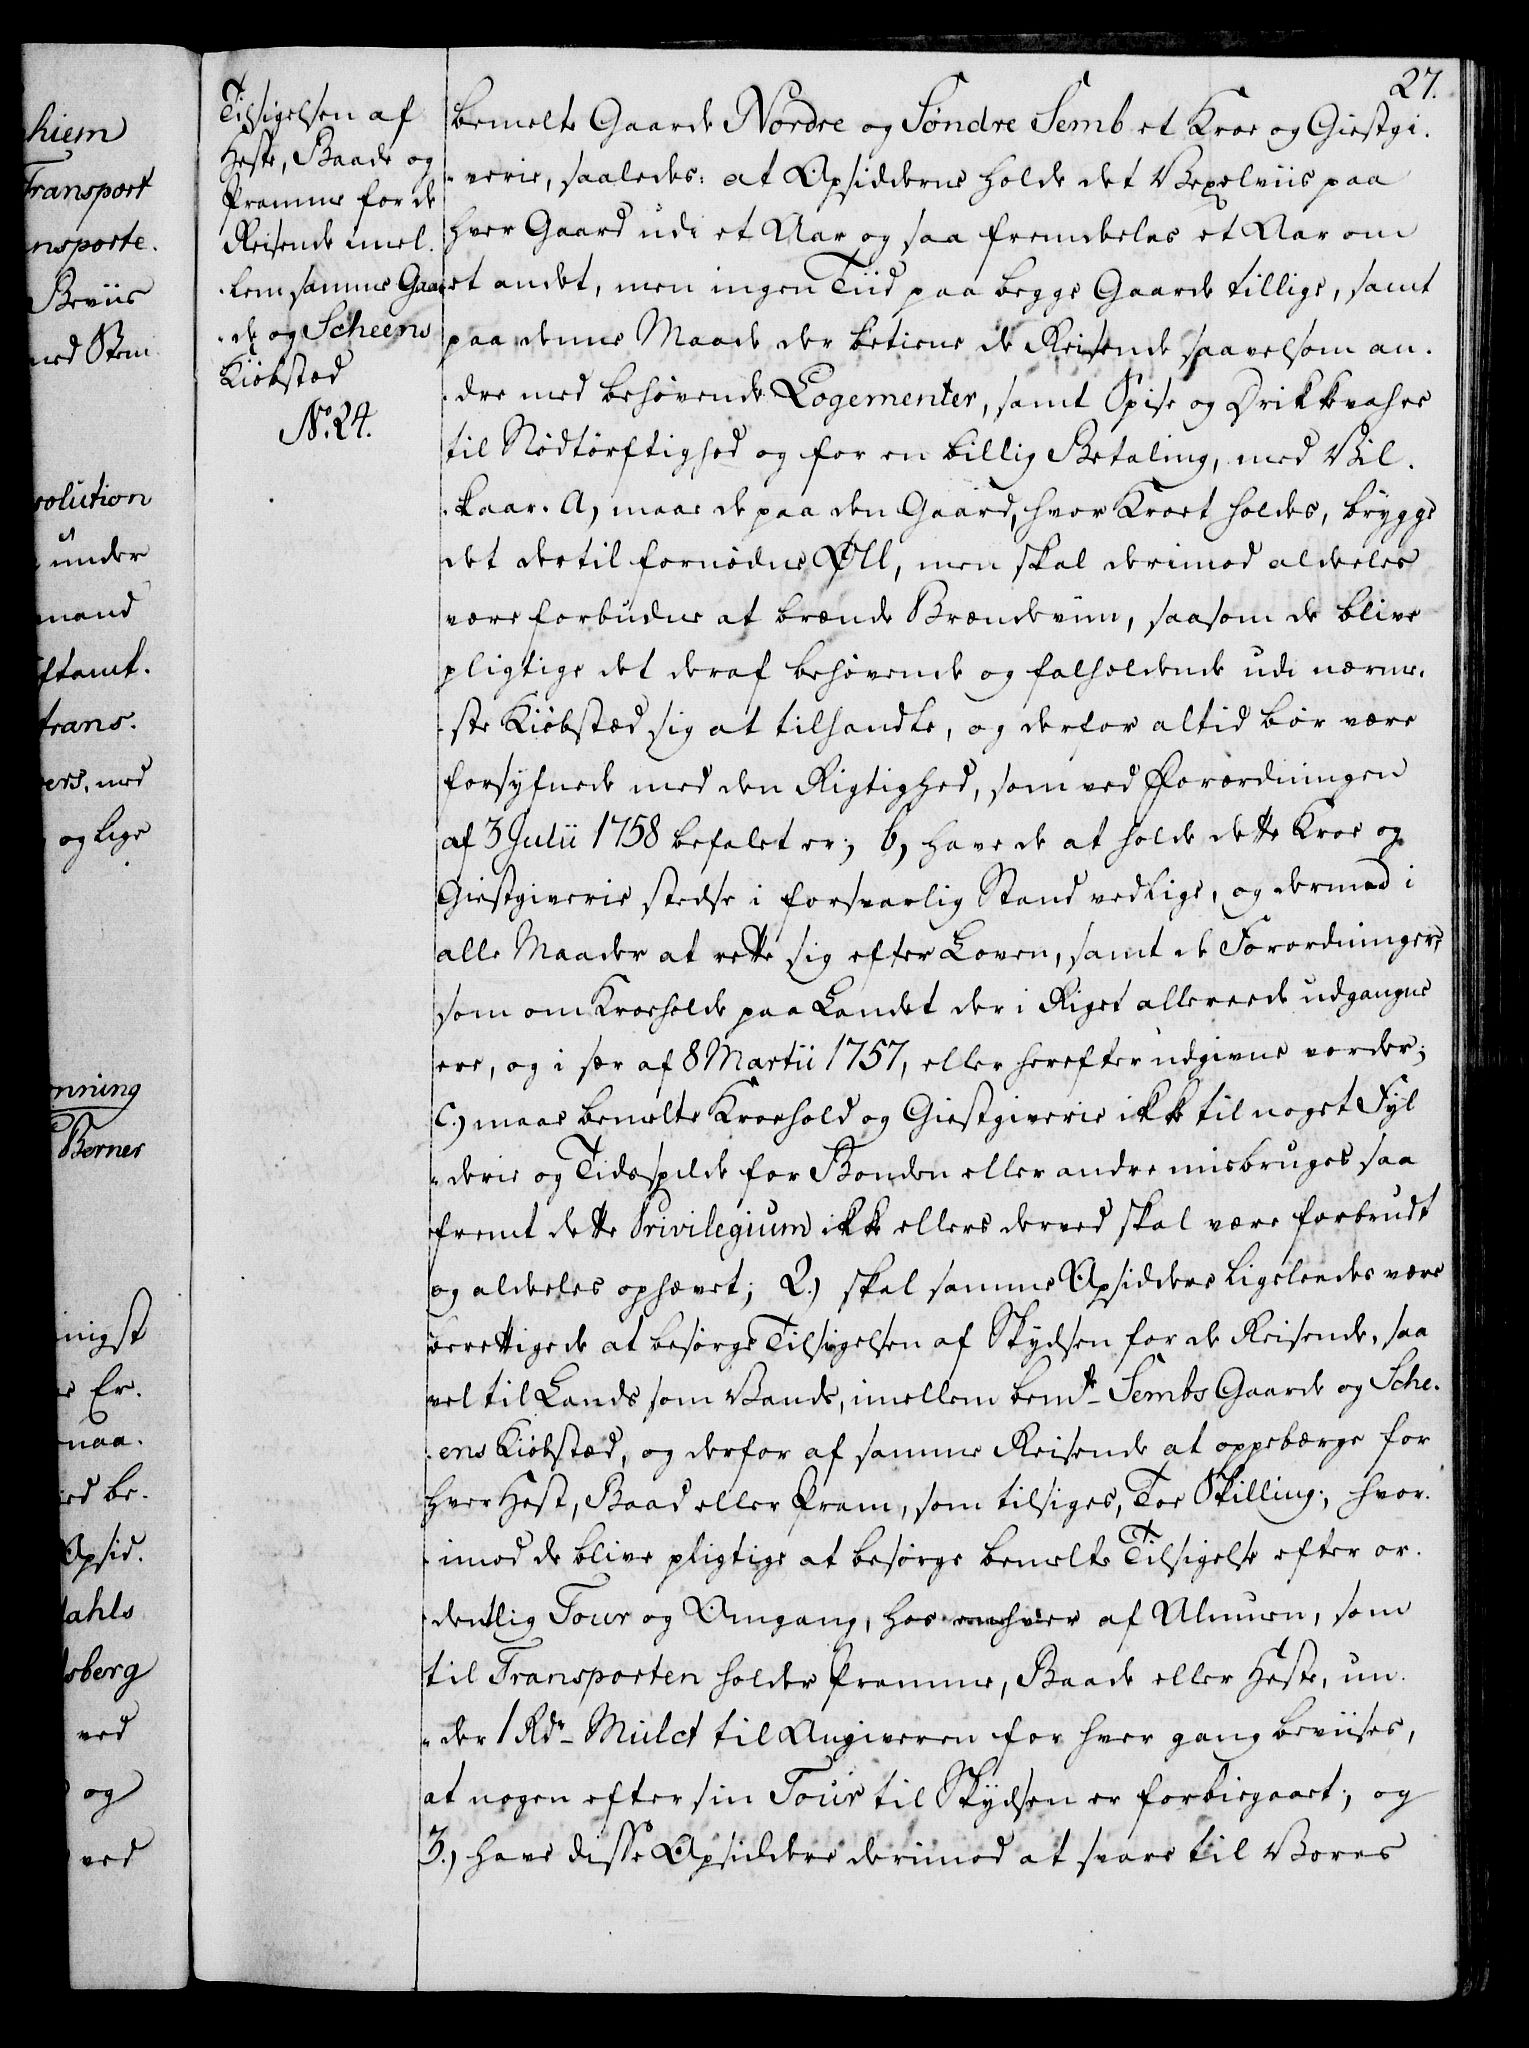 27.
Tilsigelsen af
Heste, Baade og
Pramme for de
Reisende imel-
-lem samme Gaar
-de og Scheens
Kiöbstæd
No. 24.
bemelte Gaarde Nordre og Söndre Semb et Kroe og Giestgi-
-verie, saaledes: at Opsidderne holde det Vexelviis paa
hver Gaard udi et Aar og saa fremdeles et Aar om
et andet, men ingen Tiid paa begge Gaarde tillige, samt
paa denne Maade der betiene de Reisende saavelsom an-
-dre med behövende Logementer, samt Spise og Drikkevahre
til Nödtörftighed og for en billig Betaling, med Vil-
-kaar. a, maae de paa den Gaard, hvor Kroet holdes, brygge
det dertil fornödne Öll, men skal derimod aldeeles
være forbudne at brænde Brændeviin, saasom de blive
pligtige det deraf behövende og falholdende udi nærme-
-ste Kiöbstæd sig at tilhandle, og derfor altid bör være
forsyfnede med den Rigtighed, som ved Forordningen
af 3 Julii 1758 befalet er; b, have de at holde dette Kroe og
Giestgiverie stedse i forsvarlig Stand vedlige, og dermed i
alle Maader at rette sig efter Loven, samt de Forordninger,
som om Kroehold paa Landet der i Riget allereede udgangne
ere, og i sær af 8 Martii 1757, eller herefter udgivne vorder;
c.) maae bemelte Kroehold og Giestgiverie ikke til noget Fyl
-derie og Tidsspilde for Bonden eller andre misbruges saa
fremt dette Privilegium ikke ellers derved skal være forbrudt
og aldeeles ophævet; 2.) skal samme Opsiddere ligeleedes være
berettigede at besörge Tilsigelsen af Skydsen for de Reisende, saa
vel til Lands som Vands, imellem bemte Sembs Gaarde og Sche-
-ens Kiöbstæd, og derfor af samme Reisende at oppebærge for
hver Hest, Baad eller Pram, som tilsiges, Toe Skilling; hvor-
-imod de blive pligtige at besörge bemelte Tilsigelse efter or-
-dentlig Tour og Omgang, hos enhver af Almuen, som
til Transporten holder Pramme, Baade eller Heste, un-
-der 1 Rdr Mulct til Angiveren for hver gang beviises,
at nogen efter sin Tour til Skydsen er forbiegaaet; og
3.) have disse Opsiddere derimod at svare til Vores
hiem
Transport
nsporte.
Beviis
under
mand
trans.
og lige
Berner
be.
Opsid.
ved
og
ved